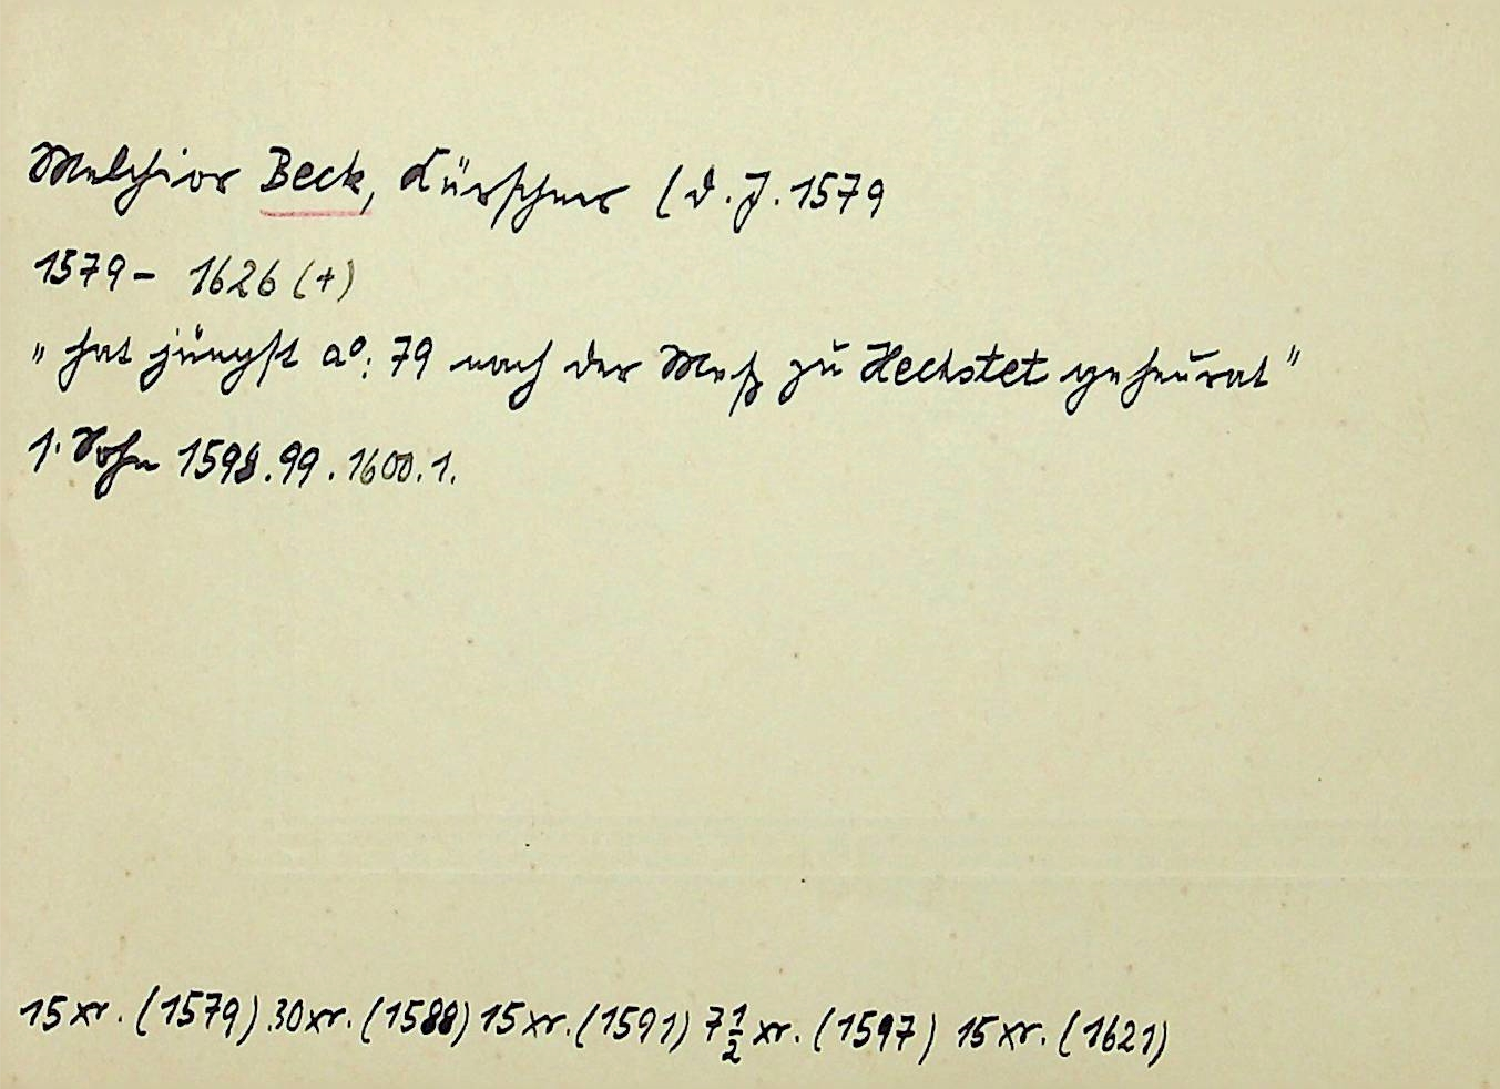 Melchior Beck, Kürschner (d. J. 1579
1579 - 1626 (+)
"hat jüngst aº: 79 nach der Meß zu Hechstet geheurat"
1. Sohn 1598. 99. 1600. 1.
15 xr. (1579). 30 xr. (1588) 15 xr. (1591) 7 1/2 xr. (1597) 15 xr. (1621)